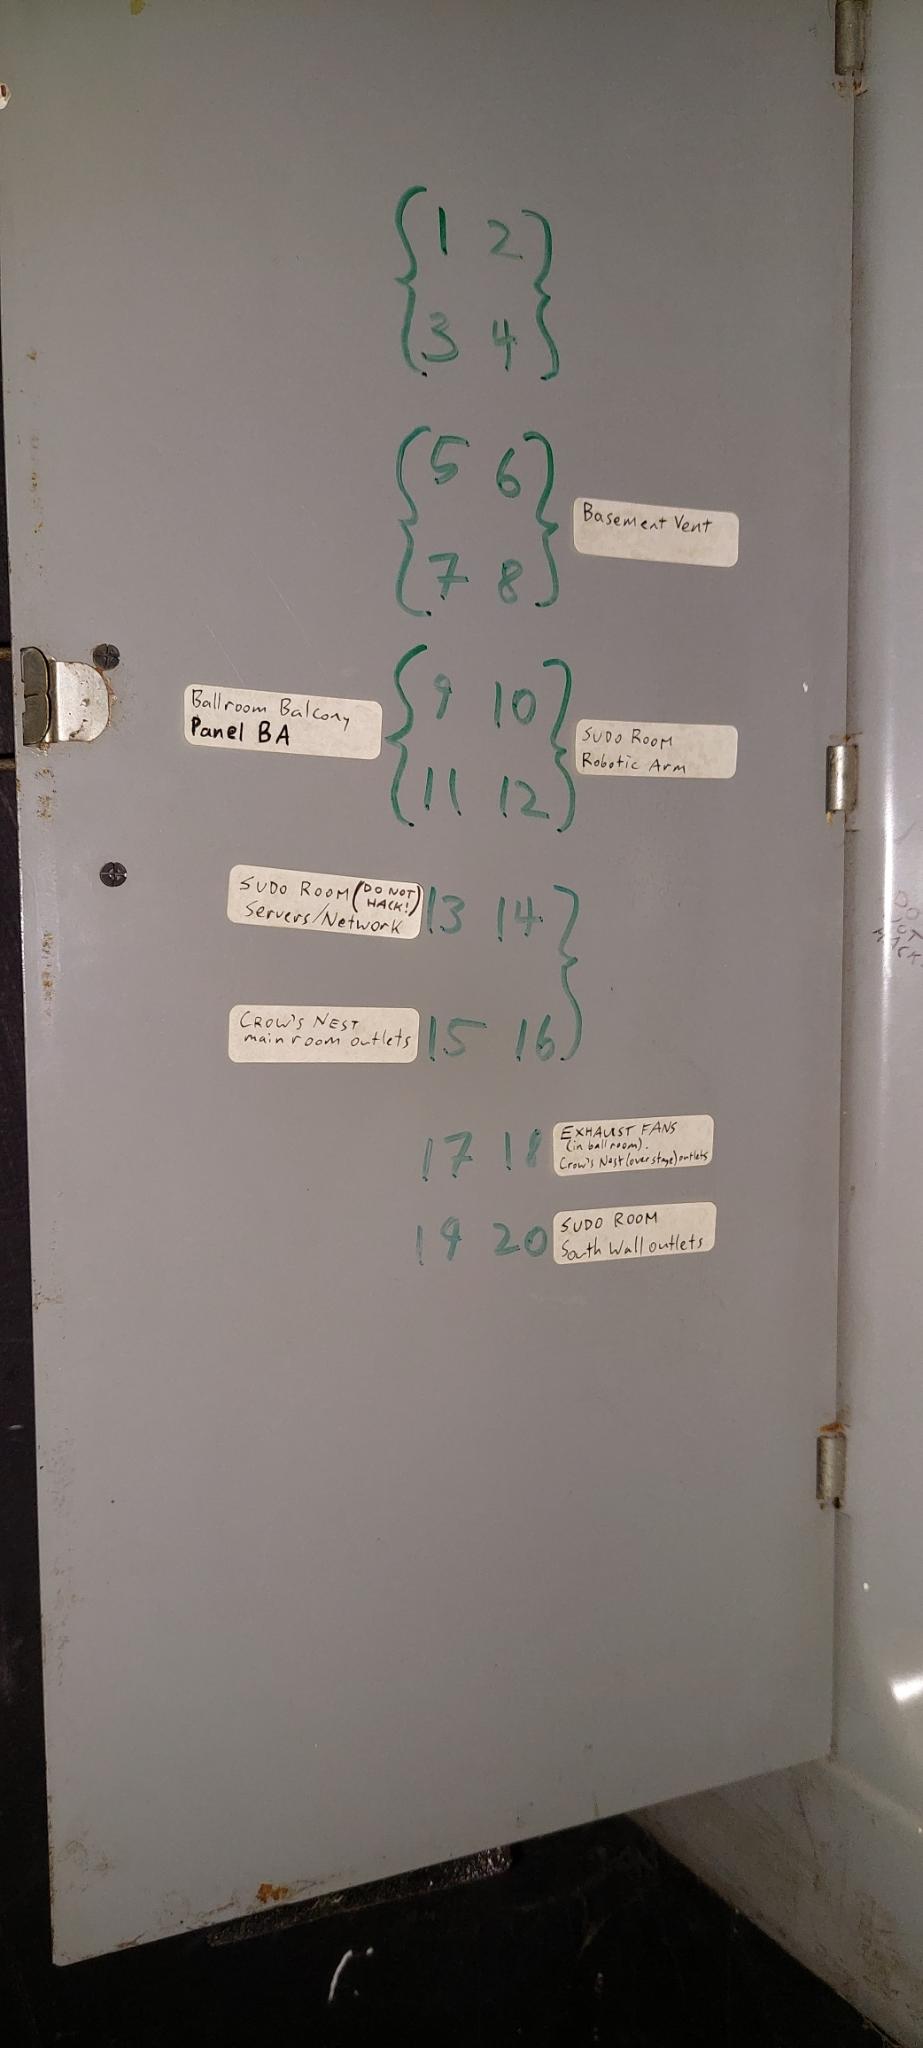 1 2
3 4
5 6
Basement Vent
7 8
Ballroom Balcony
Panel BA
9 10
SUDO ROOM
Robotic Arm
11 12
SUDO ROOM (DO NOT
HACK!)
Servers/Network
13 14
CROW'S NEST
main room outlets
15 16
17 18
EXHAUST FANS
(in ballroom).
Crow's Nest (over stage) outlets
19 20
SUDO ROOM
South Wall outlets
DO
NOT
HACK